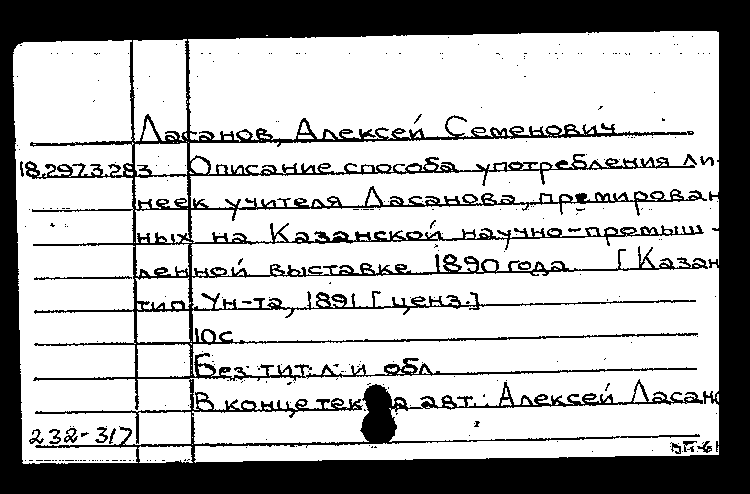 Ласанов, Алексей Семенович
18.297.3.283 Описание способа употребления ли-
неек учителя Ласанова, премирован
ных на Казанской научно-промыш-
ленной выставке 1890 года [Казан
тип. Ун-та, 1891 [ценз.]
10с.
Без тит. л. и обл.
В конце тек а авт.: Алексей Ласано
232-317